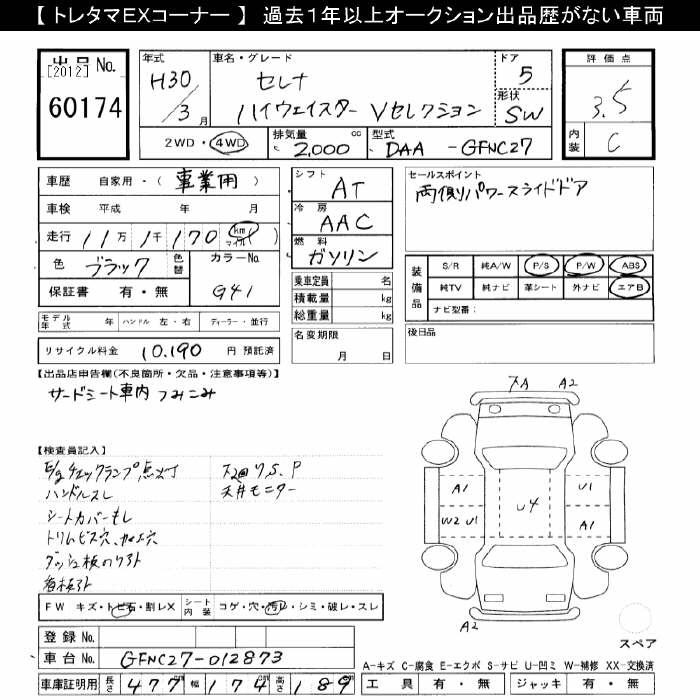 【 トレタマEXコーナー 】 過去1年以上オークション出品歴がない車両
出品 No.
[2012]
60174
年式
H30/3月
車名・グレード
セレナ
ハイウェイスター Vセレクション
ドア
5
形状
SW
評価点
3.5
内装
C
2WD・4WD
排気量 2,000 cc
型式 DAA -GFNC27
車歴 自家用・(事業用)
車検 平成 年 月
走行 11万 1千 170 km マイル
色 ブラック 色替
カラーNo. G41
保証書 有・無
シフト
AT
冷房
AAC
燃料
ガソリン
乗車定員 名
積載量 kg
総重量 kg
セールスポイント
両側パワースライドドア
装備品
S/R 純A/W P/S P/W ABS
純TV 純ナビ 革シート 外ナビ エアB
ナビ型番:
モデル年式 年 ハンドル 左・右 ディーラー・並行
名変期限
月 日
後日品
リサイクル料金 10,190 円 預託済
【出品店申告欄(不良箇所・欠品・注意事項等)】
サードシート車内つみこみ
【検査員記入】
E/gチェックランプ点灯
ハンドルスレ
天井モニター
シートカバーもし
トリムビス穴、
ダッシュ板
看板
AA A2
A1 U1
U4
W2 U1 A1
A2
スペア
FW キズ・トビ石・割レX
シート内装 コゲ・穴・汚レ・シミ・破レ・スレ
登録 No.
車台 No. GFNC27-012873
車庫証明用 長さ 477 幅 174 高さ 189
A-キズ C-腐食 E-エクボ S-サビ U-凹ミ W-補修 XX-交換済
工具 有・無 ジャッキ 有・無